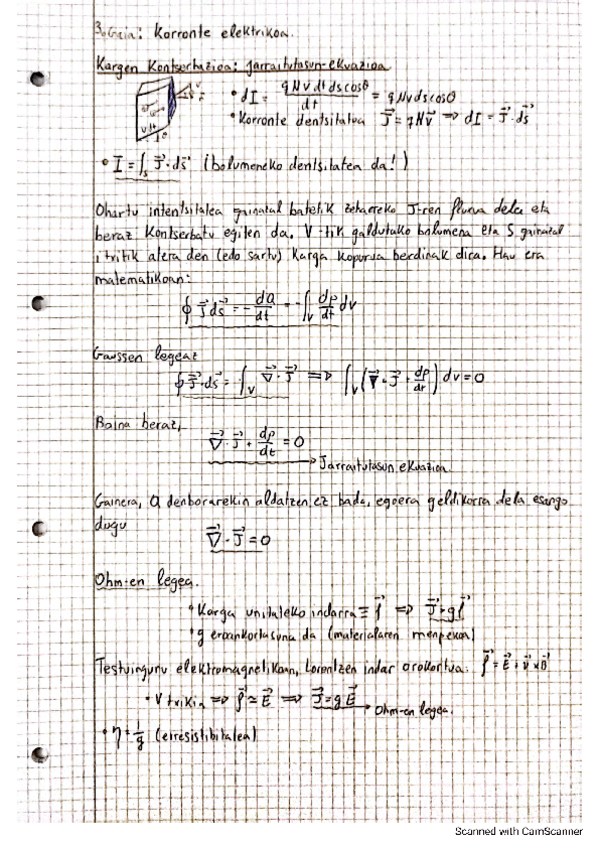 3. Gaia: Korronte elektrikoa.
Kargen Kontserbazioa: jarraitutasun-ekuazioa
• dI = qNv dt ds cosθ / dt = qNv ds cosθ
• Korronte dentsitatea J⃗ = qNv⃗ ⇒ dI = J⃗·ds⃗
• I = ∫s J⃗·ds⃗ (bolumeneko dentsitatea da!)
Ohartu intentsitatea gainazal batetik zeharreko J-ren fluxua dela eta
beraz Kontserbatu egiten da. V-tik galdutako bolumena eta S gainazal
itxitik atera den (edo sartu) Karga kopurua berdinak dira. Hau era
matematikoan:
∮ J⃗ ds⃗ = - dQ/dt = - ∫v dρ/dt dv
Gaussen legeaz
∮ J⃗·ds⃗ = ∫v ∇⃗·J⃗ ⇒ ∫v (∇⃗·J⃗ + dρ/dt) dv = 0
Baina beraz,
∇⃗·J⃗ + dρ/dt = 0
Jarraitutasun ekuazioa
Gainera, Q denborarekin aldatzen ez bada, egoera geldikorra dela esango
dugu
∇⃗·J⃗ = 0
Ohm-en legea.
• Karga unitateko indarra ≡ f⃗ ⇒ J⃗ = g f⃗
• g eroankortasuna da (materialaren menpekoa)
Testuinguru elektromagnetikoan, Lorentzen indar orokortua: f⃗ = E⃗ + v⃗ × B⃗
• V txikia ⇒ f⃗ ≃ E⃗ ⇒ J⃗ = g E⃗
Ohm-en legea.
• η = 1/g (erresistibitatea)
Scanned with CamScanner